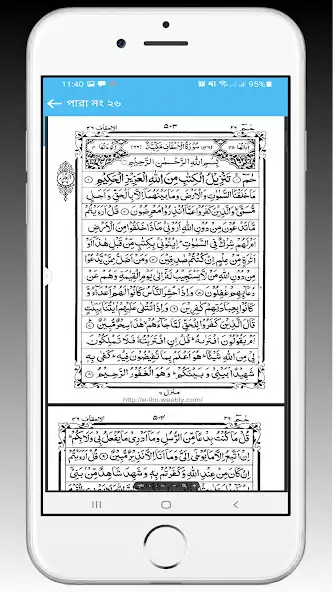 11:40 95%
← পারা নং ২৬
الاحقاف ٤٦ ٥٠٣ حٰم ٢٦
سُوْرَةُ الْاَحْقَافِ مَكِّيَّةٌ
بِسْمِ اللّٰهِ الرَّحْمٰنِ الرَّحِيْمِ
حٰمٓ ۝ تَنْزِيْلُ الْكِتٰبِ مِنَ اللّٰهِ الْعَزِيْزِ الْحَكِيْمِ ۝
مَا خَلَقْنَا السَّمٰوٰتِ وَالْاَرْضَ وَمَا بَيْنَهُمَآ اِلَّا بِالْحَقِّ وَاَجَلٍ
مُّسَمًّى وَالَّذِيْنَ كَفَرُوْا عَمَّآ اُنْذِرُوْا مُعْرِضُوْنَ ۝ قُلْ اَرَءَيْتُمْ
مَّا تَدْعُوْنَ مِنْ دُوْنِ اللّٰهِ اَرُوْنِيْ مَاذَا خَلَقُوْا مِنَ الْاَرْضِ
اَمْ لَهُمْ شِرْكٌ فِي السَّمٰوٰتِ اِيْتُوْنِيْ بِكِتٰبٍ مِّنْ قَبْلِ هٰذَآ اَوْ
اَثٰرَةٍ مِّنْ عِلْمٍ اِنْ كُنْتُمْ صٰدِقِيْنَ ۝ وَمَنْ اَضَلُّ مِمَّنْ يَّدْعُوْا
مِنْ دُوْنِ اللّٰهِ مَنْ لَّا يَسْتَجِيْبُ لَهٗٓ اِلٰى يَوْمِ الْقِيٰمَةِ وَهُمْ عَنْ
دُعَآئِهِمْ غٰفِلُوْنَ ۝ وَاِذَا حُشِرَ النَّاسُ كَانُوْا لَهُمْ اَعْدَآءً وَّ
كَانُوْا بِعِبَادَتِهِمْ كٰفِرِيْنَ ۝ وَاِذَا تُتْلٰى عَلَيْهِمْ اٰيٰتُنَا بَيِّنٰتٍ
قَالَ الَّذِيْنَ كَفَرُوْا لِلْحَقِّ لَمَّا جَآءَهُمْ هٰذَا سِحْرٌ مُّبِيْنٌ ۝
اَمْ يَقُوْلُوْنَ افْتَرٰىهُ قُلْ اِنِ افْتَرَيْتُهٗ فَلَا تَمْلِكُوْنَ
لِيْ مِنَ اللّٰهِ شَيْئًا هُوَ اَعْلَمُ بِمَا تُفِيْضُوْنَ فِيْهِ كَفٰى بِهٖ
شَهِيْدًۢا بَيْنِيْ وَبَيْنَكُمْ وَهُوَ الْغَفُوْرُ الرَّحِيْمُ ۝
منزل ٦
http://e-ilm.weebly.com/
الاحقاف ٤٦ ٥٠٤ حٰم ٢٦
قُلْ مَا كُنْتُ بِدْعًا مِّنَ الرُّسُلِ وَمَآ اَدْرِيْ مَا يُفْعَلُ بِيْ وَلَا بِكُمْ
اِنْ اَتَّبِعُ اِلَّا مَا يُوْحٰٓى اِلَيَّ وَمَآ اَنَا اِلَّا نَذِيْرٌ مُّبِيْنٌ ۝ قُلْ اَرَءَيْتُمْ
اِنْ كَانَ مِنْ عِنْدِ اللّٰهِ وَكَفَرْتُمْ بِهٖ وَشَهِدَ شَاهِدٌ مِّنْۢ بَنِيْٓ